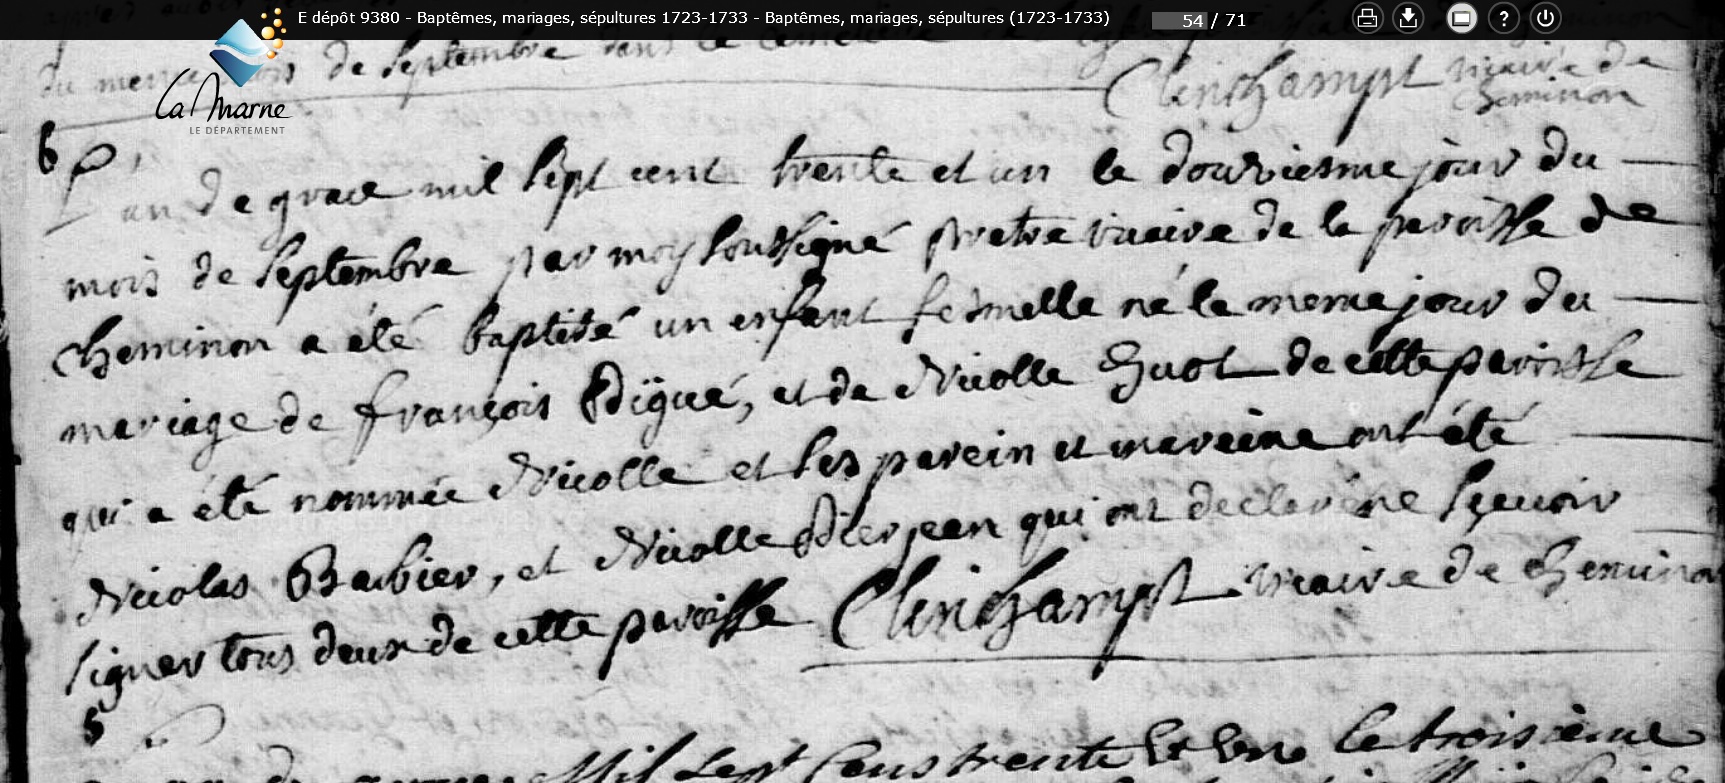 E dépôt 9380 - Baptêmes, mariages, sépultures 1723-1733 - Baptêmes, mariages, sépultures (1723-1733) 54 / 71
La Marne
LE DÉPARTEMENT
du meme mois de septembre dans le
Clinchampt vicaire de
cheminon
6
L'an de grace mil sept cent trente et un le douziesme jour du
mois de septembre par moy soussigné pretre vicaire de la paroisse de
cheminon a été baptisé un enfant femelle né le meme jour du
mariage de françois Digüé, et de Nicolle Huot de cette paroisse
qui a été nommée Nicolle et les parein et mareine ont été
Nicolas Barbier, et Nicolle Dierjean qui ont declaré ne sçavoir
signer tous deux de cette paroisse Clinchampt vicaire de cheminon
5
Mil sept Cens trente Et Un le troisième